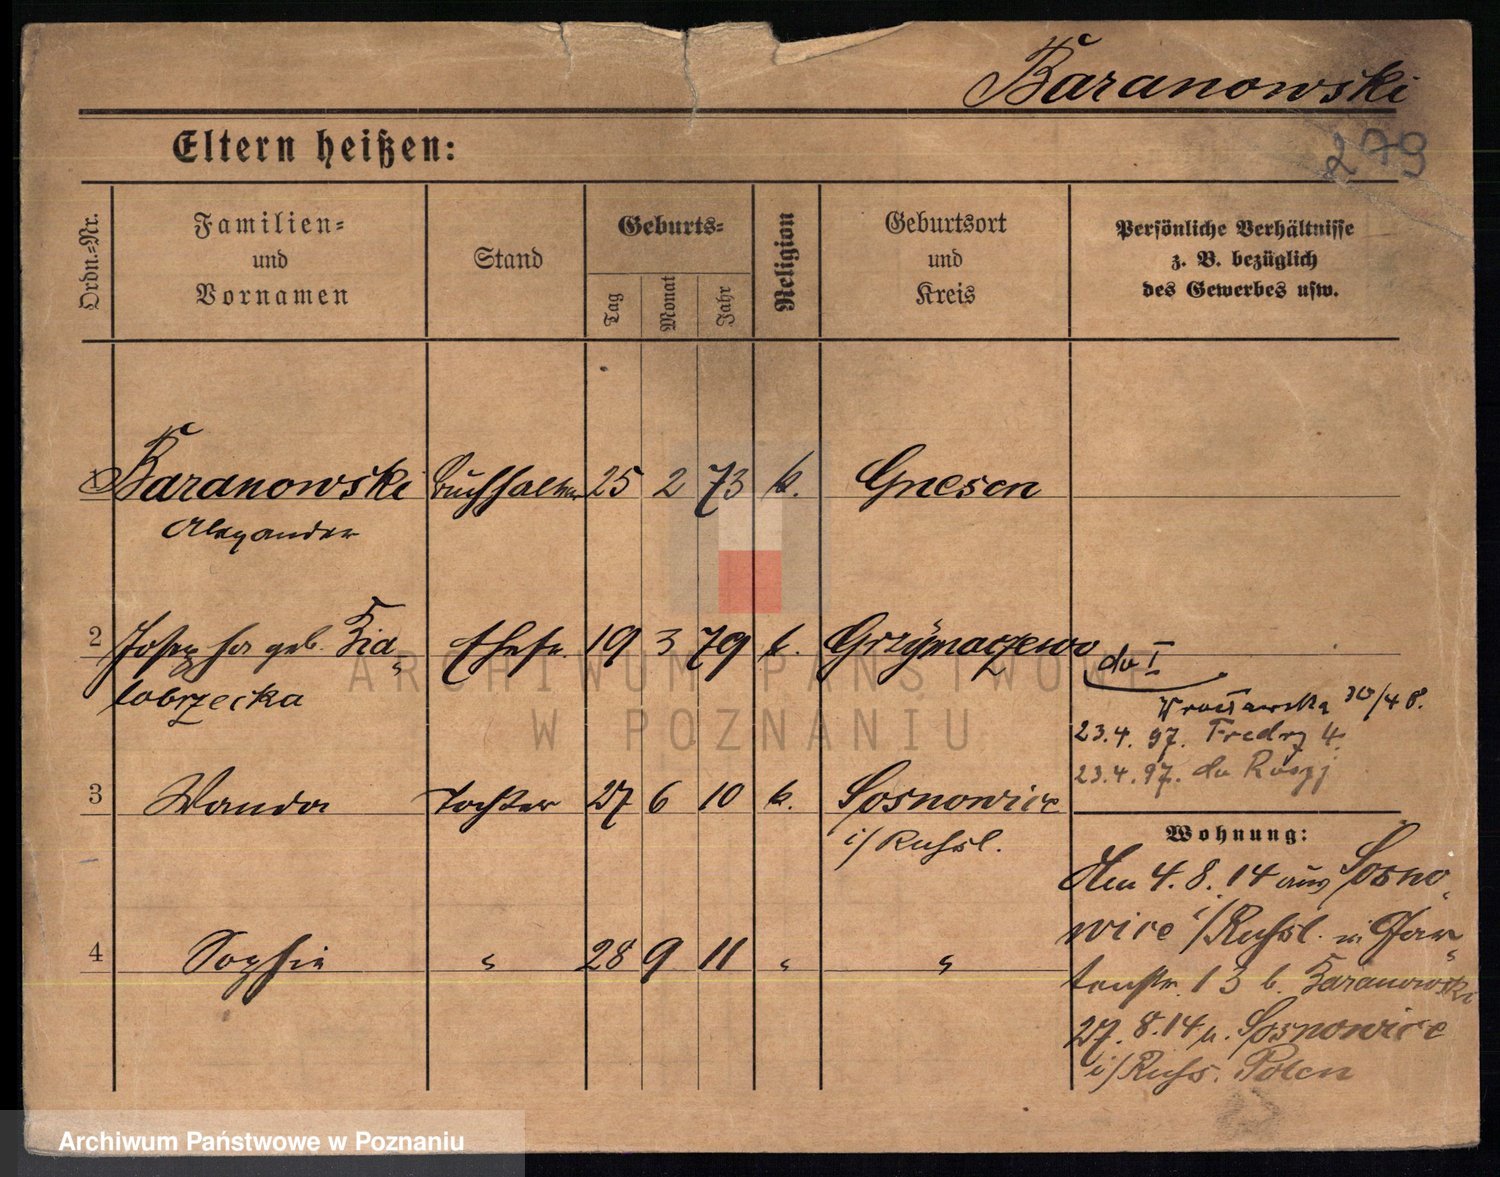 Baranowski
279
Eltern heißen:
Ordn.-Nr. Familien- und Vornamen Stand Geburts- Tag Monat Jahr Religion Geburtsort und Kreis Persönliche Verhältnisse z. B. bezüglich des Gewerbes usw.
1 Baranowski Buchhalter 25 2 73 k. Gnesen
Alexander
2 Josepha geb. Bia- Ehefr. 19 3 79 k. Grzymaczewo
lobrzecka
du I
Wrocławska 30/4 8.
23.4.97. Fredry 4.
23.4.97. du
3 Wanda Tochter 27 6 10 k. Sosnowice
i/Russl.
Wohnung:
Am 4.8.14 aus Sosno-
wice i/Russl. n. Gar-
4 Sophie " 28 9 11 " "
tenstr. 13 b. Baranowski
27.8.14 n. Sosnowice
i/Russ. Polen
ARCHIWUM PAŃSTWOWE
W POZNANIU
Archiwum Państwowe w Poznaniu